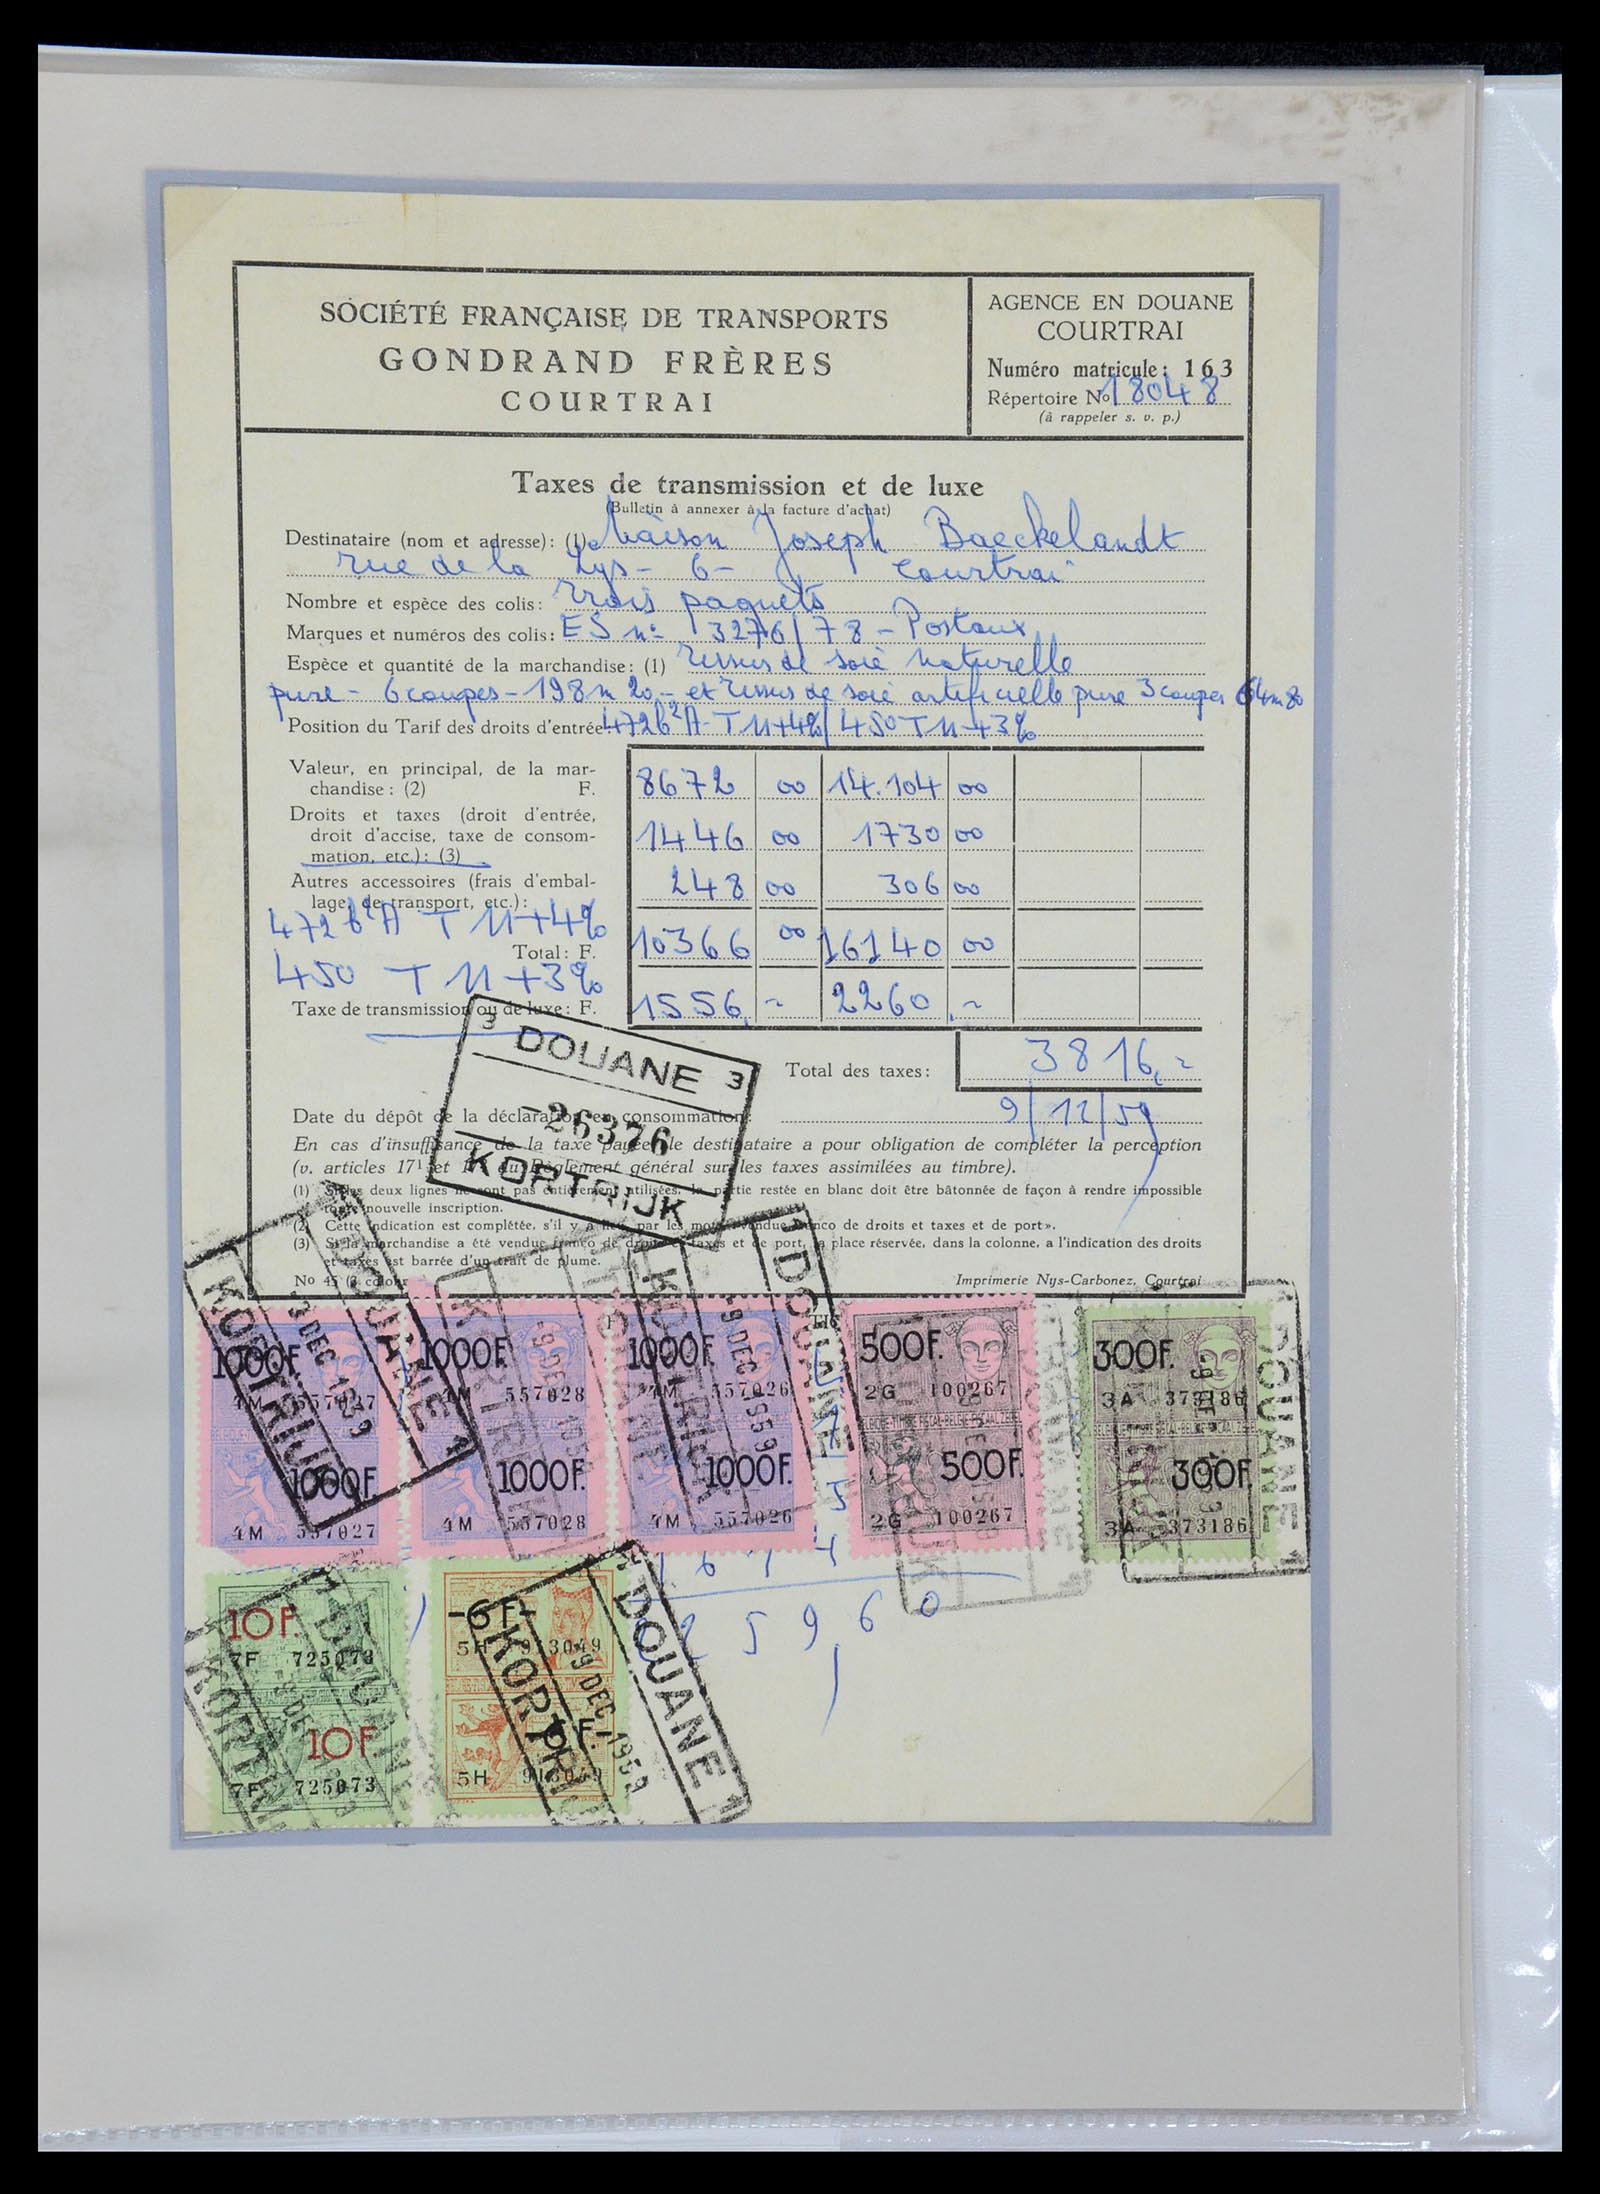 SOCIÉTÉ FRANÇAISE DE TRANSPORTS
GONDRAND FRÈRES
COURTRAI
AGENCE EN DOUANE
COURTRAI
Numéro matricule: 163
Répertoire No 18048
(à rappeler s. v. p.)
Taxes de transmission et de luxe
(Bulletin à annexer à la facture d'achat)
Destinataire (nom et adresse): (1) Maison Joseph Baeckelandt
rue de la Lys - 6 - Courtrai
Nombre et espèce des colis: trois paquets
Marques et numéros des colis: ES no 3276/78 - Postaux
Espèce et quantité de la marchandise: (1) tissus de soie naturelle
pure - 6 coupes - 198m20 - et tissus de soie artificielle pure 3 coupes 64m80
Position du Tarif des droits d'entrée 472b²A - T 11+4% / 450 T 11+3%
Valeur, en principal, de la mar-
chandise: (2) F. 8672 00 14.104 00
Droits et taxes (droit d'entrée,
droit d'accise, taxe de consom-
mation, etc.): (3) 1446 00 1730 00
Autres accessoires (frais d'embal-
lage, de transport, etc.): 248 00 306 00
472b²A T 11+4%
Total: F. 10366 00 16140 00
450 T 11+3%
Taxe de transmission ou de luxe: F. 1556,- 2260,-
Total des taxes: 3816,-
Date du dépôt de la déclaration en consommation: 9/12/59
3 DOUANE 3
-26376
KORTRIJK
En cas d'insuffisance de la taxe payée, le destinataire a pour obligation de compléter la perception
(v. articles 17¹ et du Règlement général sur les taxes assimilées au timbre).
(1) Si les deux lignes ne sont pas entièrement utilisées, la partie restée en blanc doit être bâtonnée de façon à rendre impossible
toute nouvelle inscription.
(2) Cette indication est complétée, s'il y a lieu, par les mots «vendue franco de droits et taxes et de port».
(3) Si la marchandise a été vendue franco de droits et taxes et de port, la place réservée, dans la colonne, a l'indication des droits
et taxes est barrée d'un trait de plume.
No 45 (3 colonn
Imprimerie Nys-Carbonez, Courtrai
1000F. 1000F. 1000F. 500F. 300F.
4M 557027 4M 557028 4M 557026 2G 100267 3A 373186
BELGIQUE-TIMBRE FISCAL-BELGIE-FISCAAL ZEGEL
1000F. 1000F. 1000F. 500F. 300F.
4M 557027 4M 557028 4M 557026 2G 100267 3A 373186
1 DOUANE 1
-9 DEC 1959
KORTRIJK
25960
10F. -6F-
7F 725073 5H 913049
10F. F.-
7F 725073 5H 913049
1 DOUANE 1
-9 DEC 1959
KORTRIJK